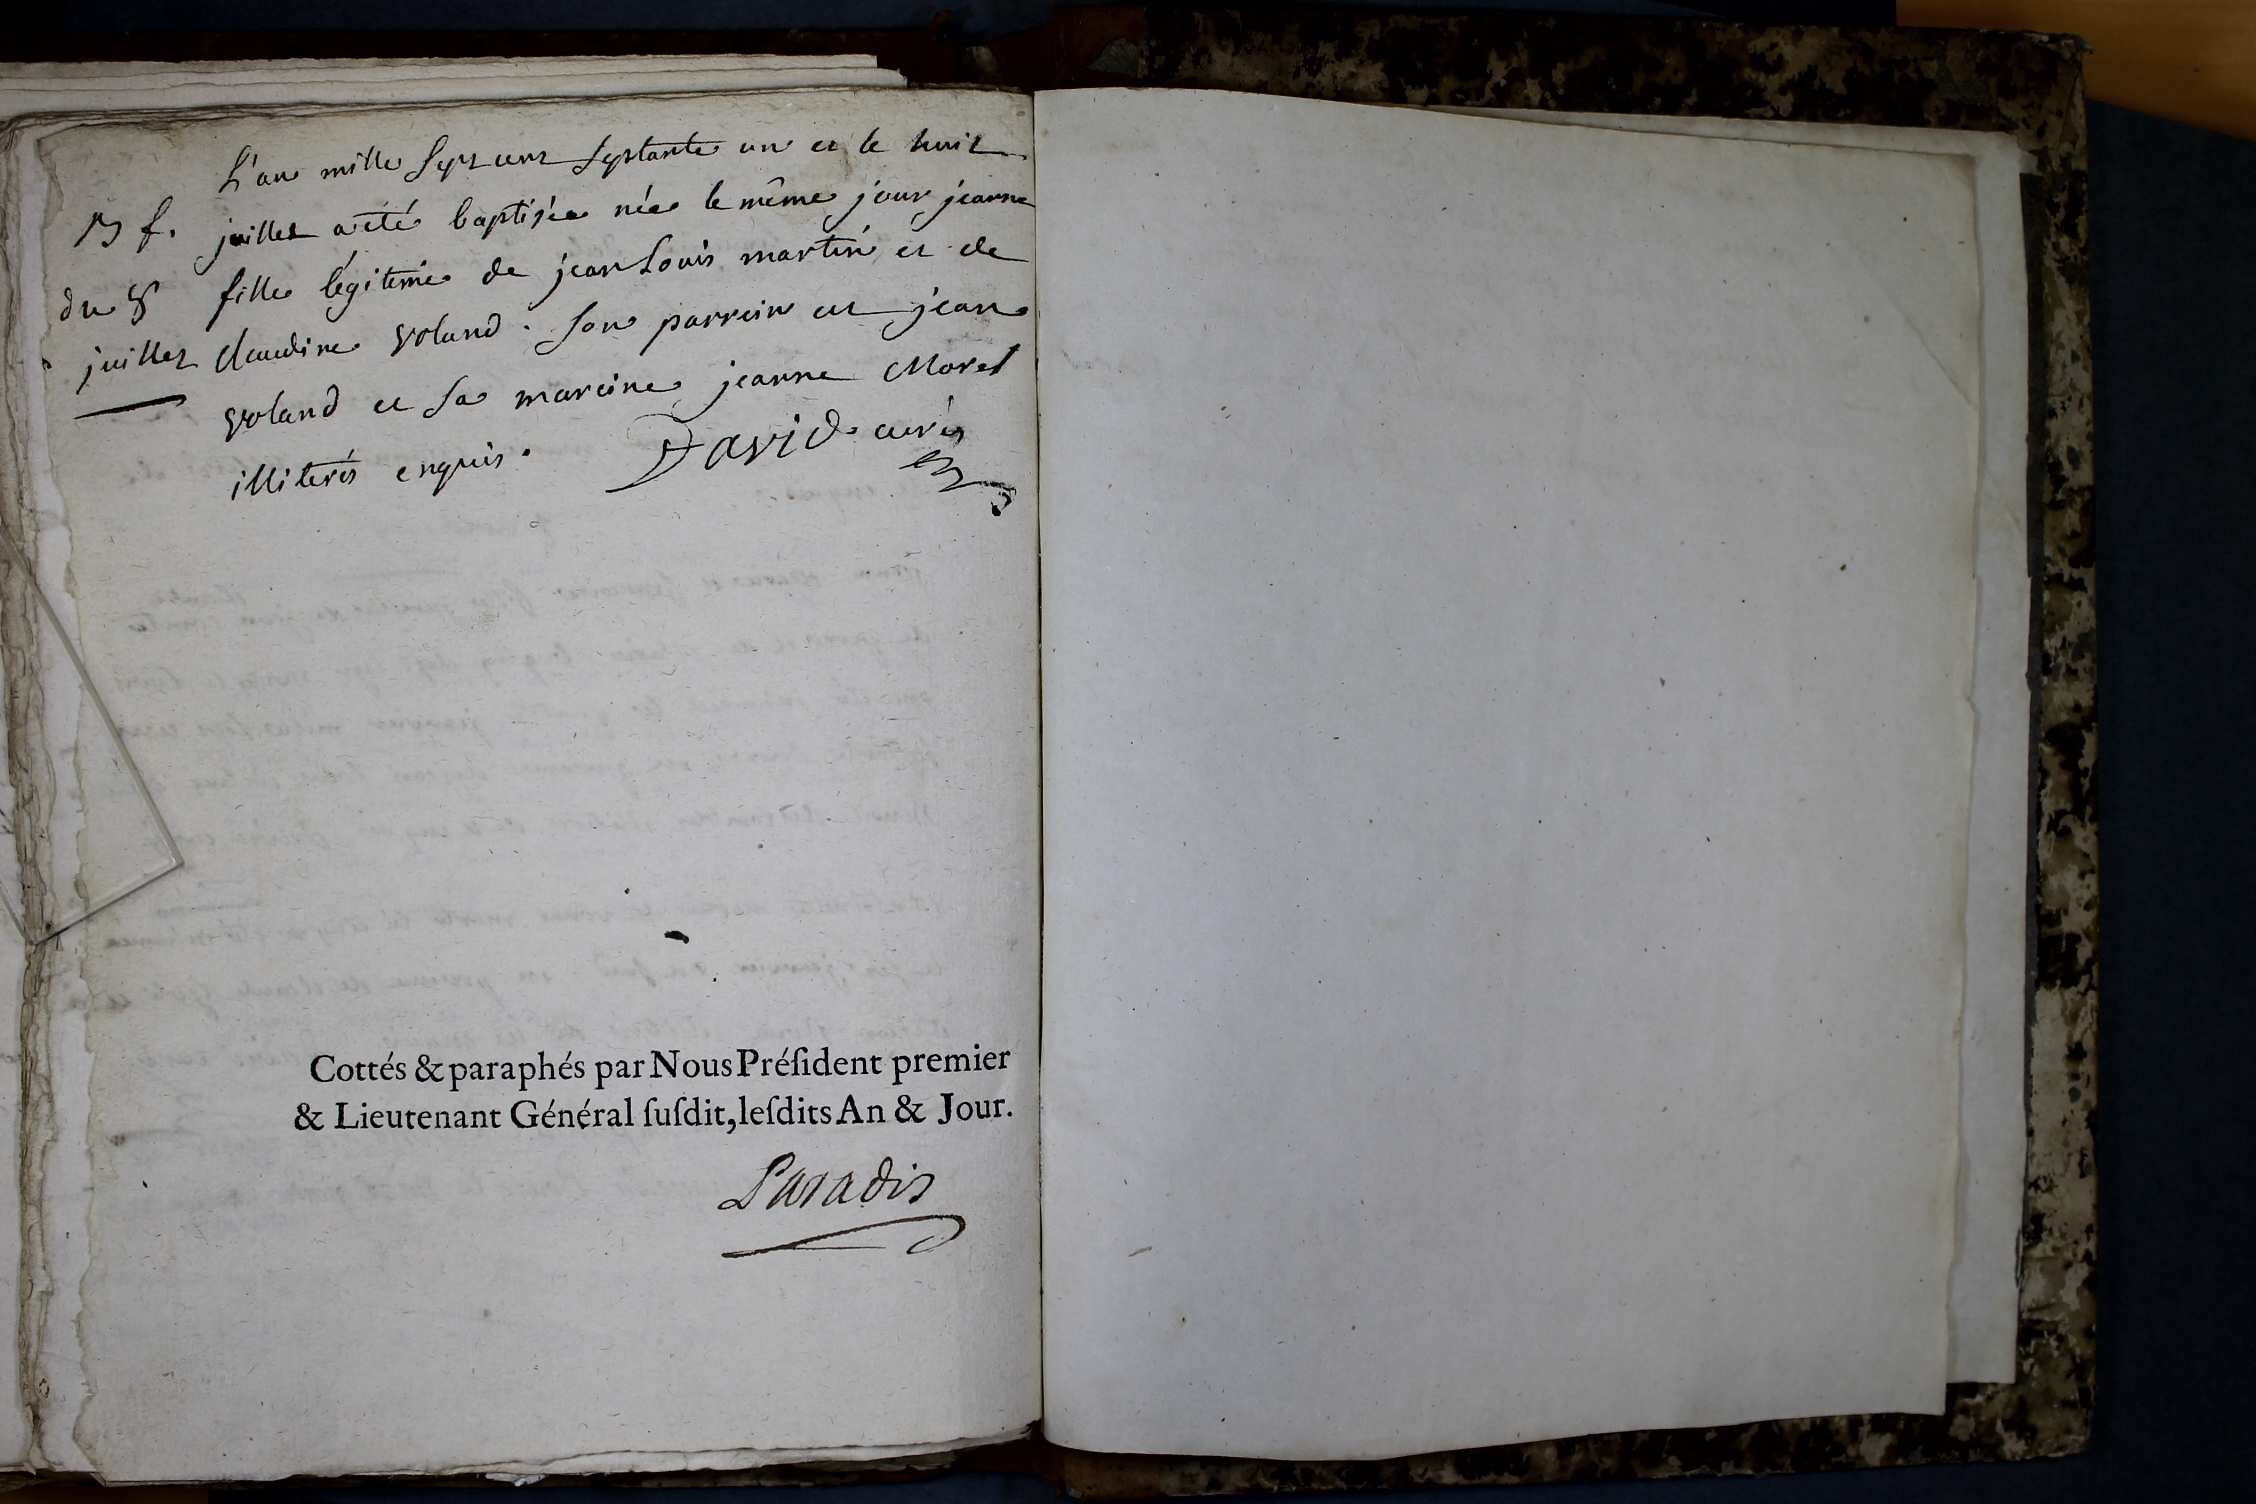 L'an mille sept cent septante un et le huit
B f. juillet a été baptisée née le même jour jeanne
du 8 fille légitemie de jean Louis martin et de
juillet claudine voland. son parrein est jean
voland et sa mareine jeanne Morel
illiterés enquis. David curé
Cottés & paraphés par Nous Préſident premier
& Lieutenant Général ſuſdit, leſdits An & Jour.
Paradis